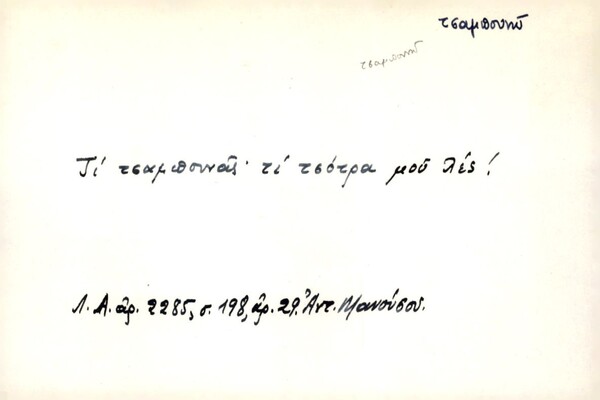 τσαμπουνῶ
τσαμπουνῶ
Τί τσαμπουνᾶς· τί τσότρα μοῦ λές!
Λ. Α. ἀρ. 2285, σ. 198, ἀρ. 29. Ἀντ. Μανούσου.